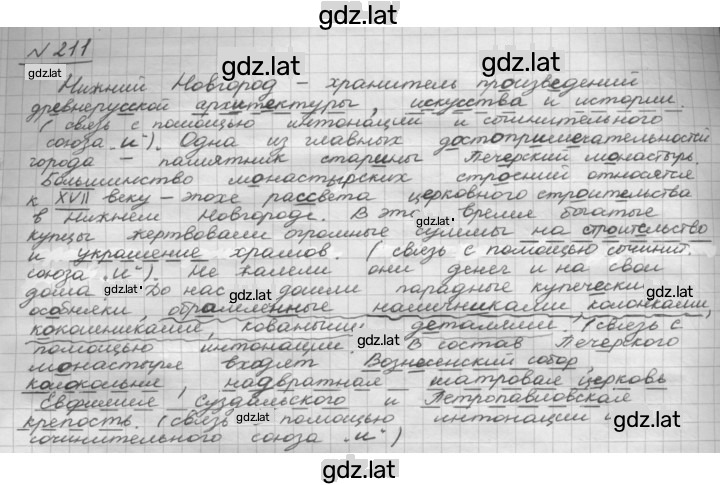 gdz.lat
№ 211
gdz.lat gdz.lat
Нижний Новгород – хранитель произведений
древнерусской архитектуры, искусства и истории.
(связь с помощью интонации и сочинительного
союза „и“). Одна из главных достопримечательностей
города – памятник старины Печерский монастырь.
Большинство монастырских строений относятся
к XVII веку – эпохе рассвета церковного строительства
в Нижнем Новгороде. В это gdz.lat время богатые
купцы жертвовали огромные суммы на строительство
и украшение храмов. (связь с помощью сочинит.
союза „и“). Не жалели они денег и на свои
дома gdz.lat До нас дошли парадные купечески
особняки, обрамленные gdz.lat наличниками, колонками, gdz.lat
кокошниками, коваными деталями. (связь с
помощью интонации). gdz.lat В состав Печерского
монастыря входят Вознесенский собор,
колокольня, надвратная шатровая церковь
gdz.lat gdz.lat
Евфимия Суздальского и Петропавловская
крепость. (связь gdz.lat с помощью интонации и gdz.lat
сочинительного союза „и“)
gdz.lat